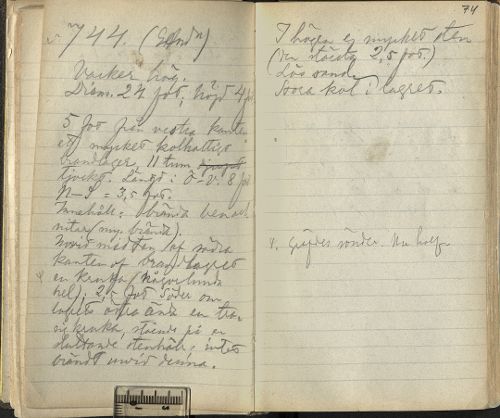 744.
Vacker hög.
Diam. 24 fot, höjd 4 fot.
5 fot från vestra kanten
ett mycket kolhaltigt
brandlager, 11 tum
tjockt. Längd i Ö–V. 8 fot
N–S = 3,5 fot.
Innehåll: brända ben
Invid midten af södra
kanten af brandlagret
en kruka (någorlunda
hel); 2,5 fot söder om
lagrets östra ända en
kruka, stående på en
sluttande stenhäll; intet
brändt invid denna.
74
I högen ej mycket sten
(den största 2,5 fot.)
Lös sand.
Stora kol i lagret.
Gräfdes sönder. Nu half